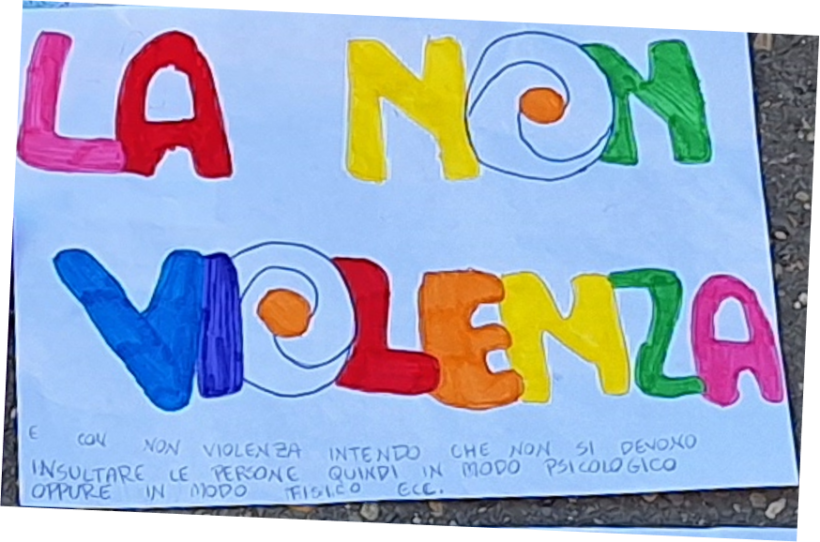 LA NON
VIOLENZA
E CON NON VIOLENZA INTENDO CHE NON SI DEVONO
INSULTARE LE PERSONE QUINDI IN MODO PSICOLOGICO
OPPURE IN MODO FISICO ECC.